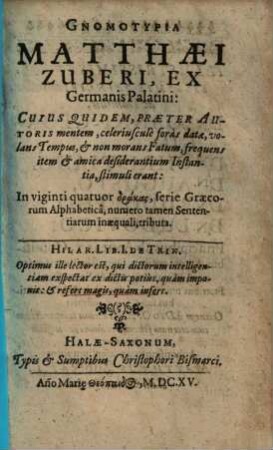 GNOMOTYPIA
MATTHÆI
ZUBERI, EX
Germanis Palatini:
CUJUS QUIDEM, PRÆTER AU-
TORIS mentem, celeriusculè foràs data, vo-
lans Tempus, & non morans Fatum, frequens
item & amica desiderantium Instan-
tia, stimuli erant:
In viginti quatuor ὁρμὰς, serie Græco-
rum Alphabeticâ, numero tamen Senten-
tiarum inæquali, tributa.
HILAR. LIB. I. DE TRIN.
Optimus ille lector est, qui dictorum intelligen-
tiam exspectat ex dictis potius, quàm impo-
nit: & refert magis, quàm infert.
HALÆ-SAXONUM,
Typis & Sumptibus Christophori Bismarci.
Año Marię M.DC.XV.